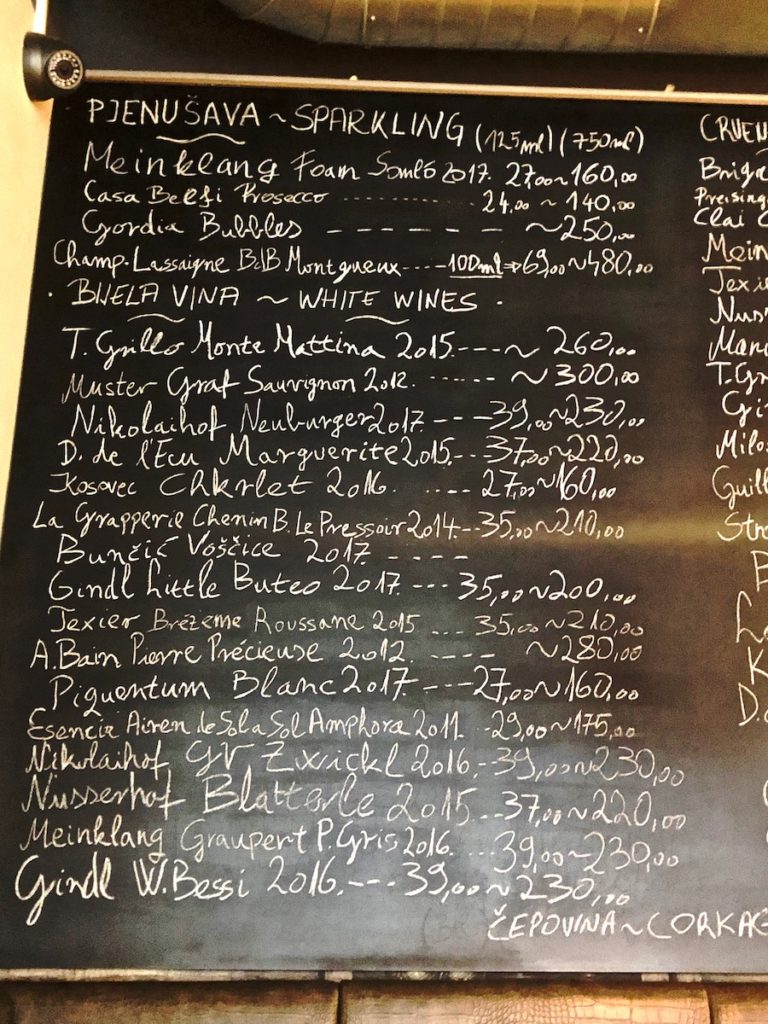 PJENUŠAVA ~ SPARKLING (125ml) (750ml)
Meinklang Foam Somló 2017. 27,00 ~ 160,00
Casa Belfi Prosecco ------------ 24,00 ~ 140,00
Gordia Bubbles ------- ~ 250,00
Champ. Lassaigne BdB Montgueux ---- 100ml → 69,00 ~ 480,00
· BIJELA VINA ~ WHITE WINES ·
T. Grillo Monte Mattina 2015. --- ~ 260,00
Muster Graf Sauvignon 2012. ------ ~ 300,00
Nikolaihof Neuburger 2017. --- 39,00 ~ 230,00
D. de l'Ecu Marguerite 2015. -- 37,00 ~ 220,00
Kosovec Chkrlet 2016. ---- 27,00 ~ 160,00
La Grapperie Chenin B. Le Pressoir 2014. -- 35,00 ~ 210,00
Bunčić Voščice 2017. ----
Gindl Little Buteo 2017. --- 35,00 ~ 200,00
Texier Brézeme Roussane 2015 ... 35,00 ~ 210,00
A. Bain Pierre Précieuse 2012. ---- ~ 280,00
Piquentum Blanc 2017. --- 27,00 ~ 160,00
Esencia Airen de Sol a Sol Amphora 2011. .. 29,00 ~ 175,00
Nikolaihof GV Zwickl 2016. - 39,00 ~ 230,00
Nusserhof Blatterle 2015. 37,00 ~ 220,00
Meinklang Graupert P. Gris 2016. ... 39,00 ~ 230,00
Gindl W. Bessi 2016. --- 39,00 ~ 230,00
ČEPOVINA ~ CORKAG
CRVEN
Briga
Preising
Clai
Mein
Texie
Nuss
T. Gr
Gi
Milo
Guill
Str
K
D.